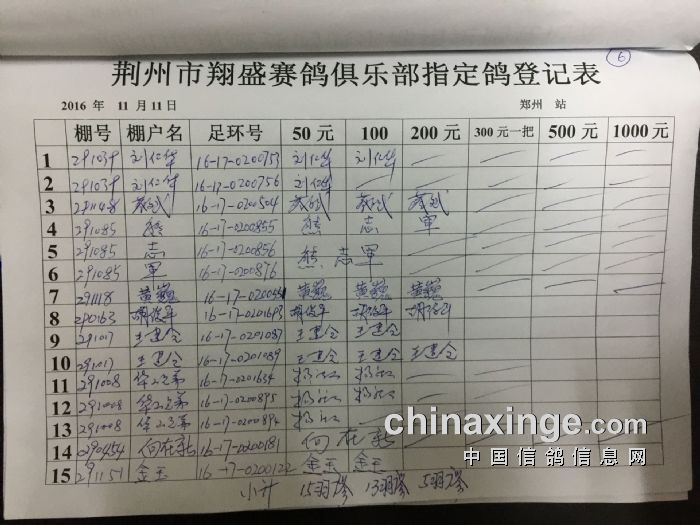 6
荆州市翔盛赛鸽俱乐部指定鸽登记表
2016 年 11 月 11 日 郑州 站
棚号 棚户名 足环号 50 元 100 200 元 300 元一把 500 元 1000 元
1 291039 刘仁华 16-17-0200753 刘仁华 刘仁华
2 291039 刘仁华 16-17-0200756 刘仁华
3 16-17-0200504
4 291085 熊 16-17-0200855 熊 志 军
5 291085 志 16-17-0200856 熊 志 军
6 291085 军 16-17-0200876
7 291118 黄巍 黄巍 黄巍 黄巍
8 290163 16-17-0201698
9 291017 王建全 16-17-0201087 王建全 王建全
10 291017 王建全 16-17-0201089 王建全 王建全 王建全
11 291008 16-17-0201634
12 291008 16-17-0200895
13 291008 16-17-0200894
14 290454 何在新 16-17-0200181 何在新
15 291151 金玉 16-17-0200122 金玉 金玉
小计 15羽 13羽 5羽
chinaxinge.com
中国信鸽信息网